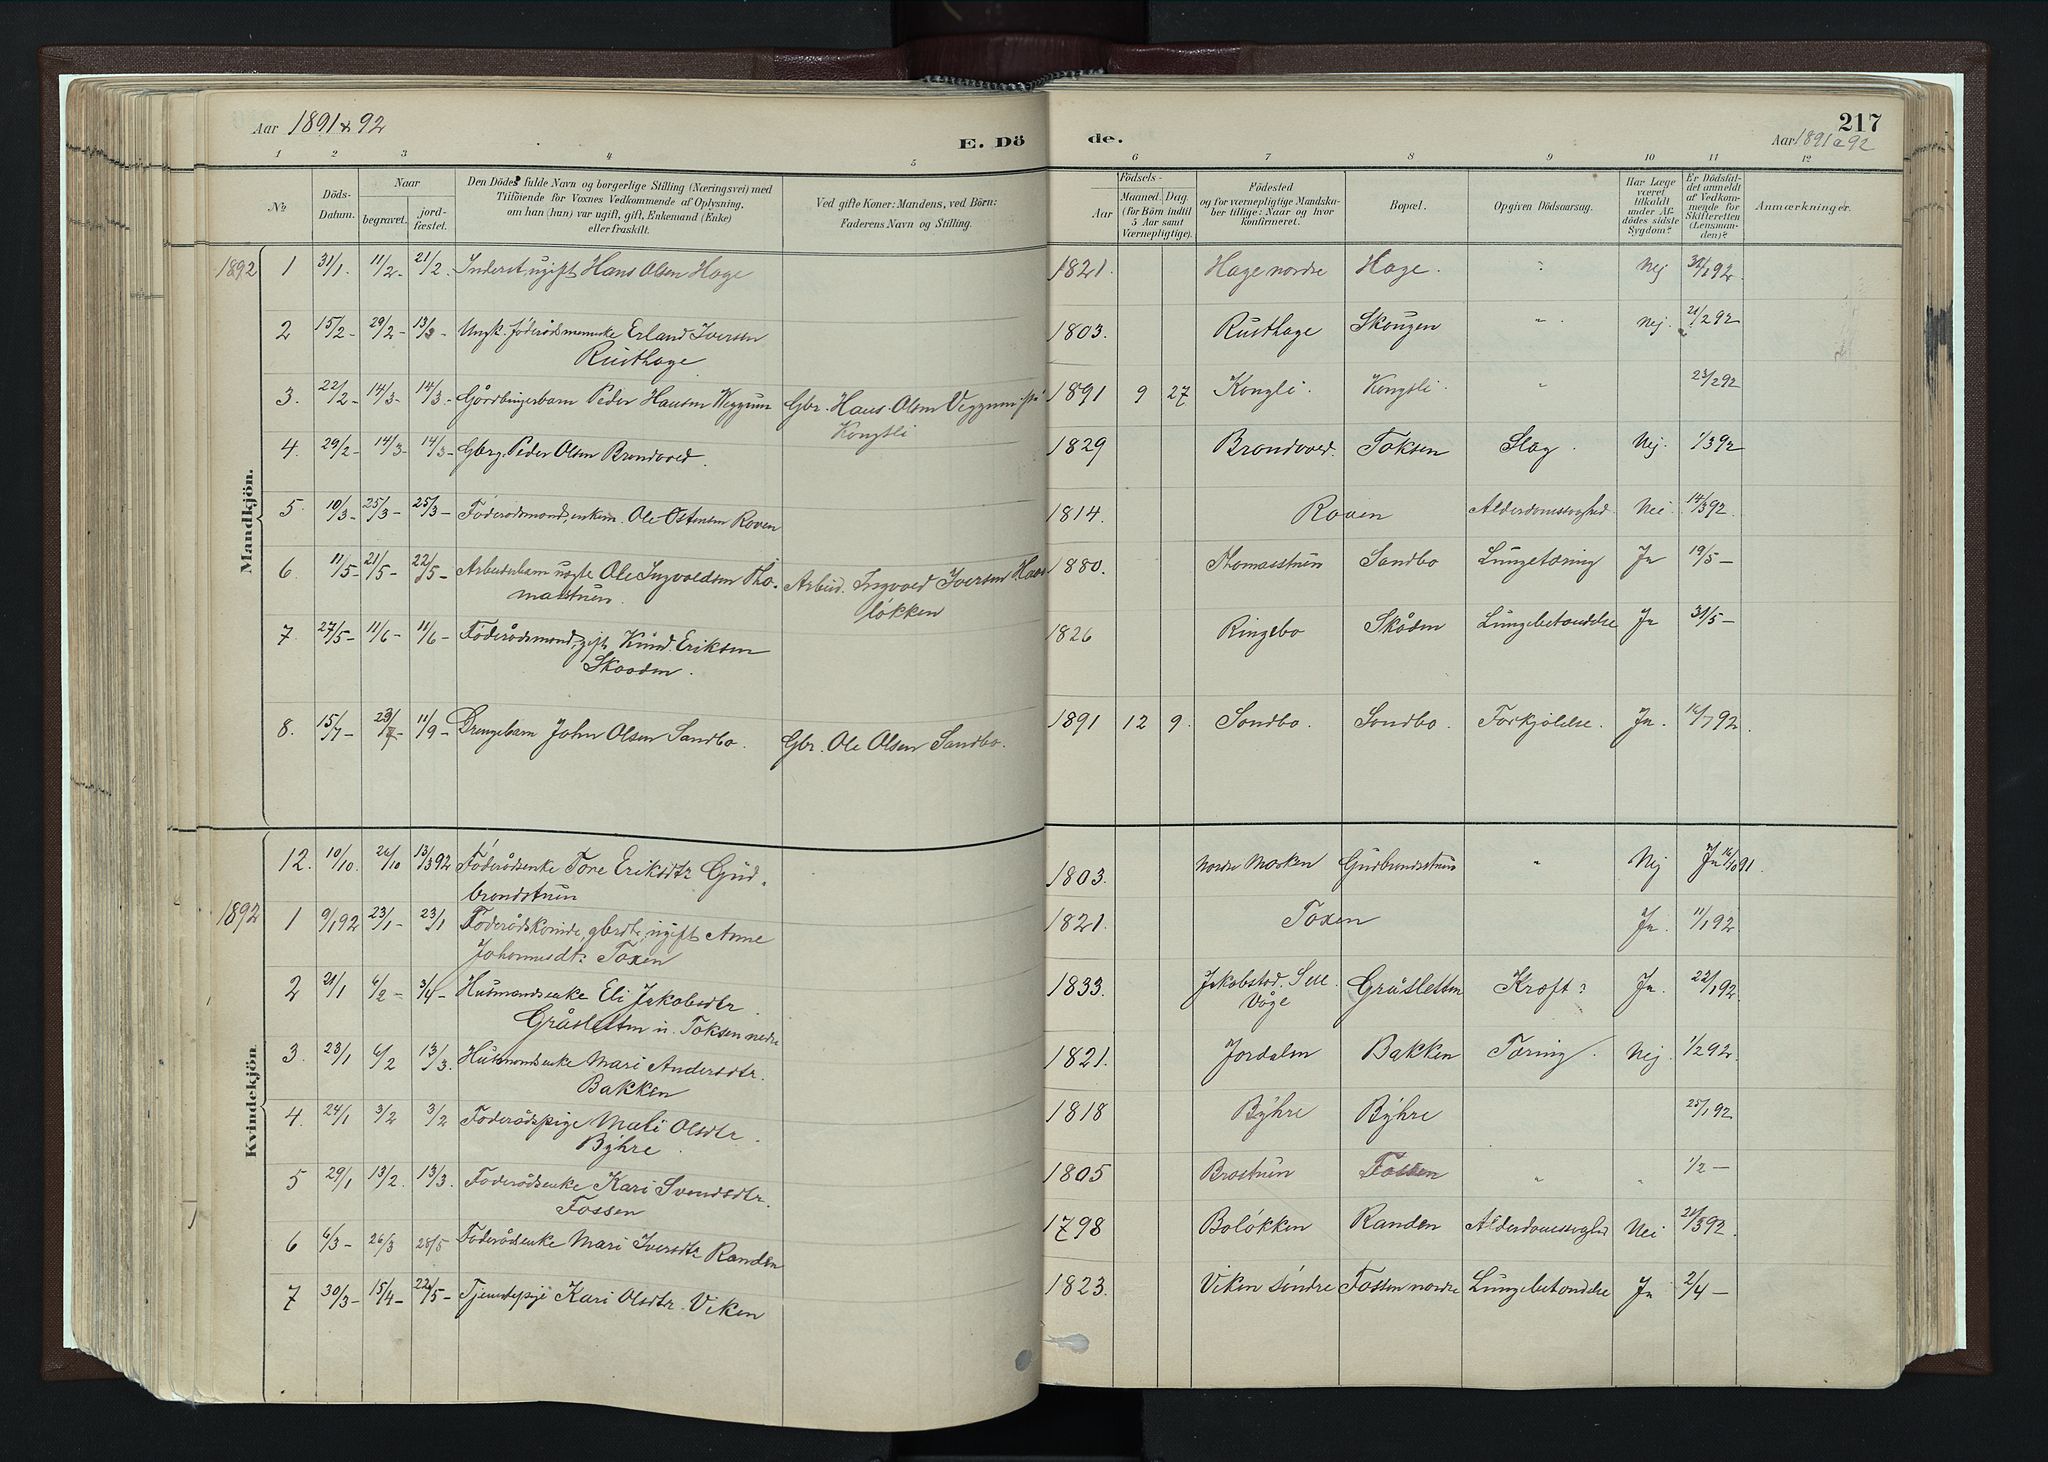 Aar 1891 & 92
E. Dö
de.
217
Aar 1891 & 92
1 2 3 4 5 6 7 8 9 10 11 12
№
Döds-
Datum.
Naar
begravet.
jord-
fæstet.
Den Dödes fulde Navn og borgerlige Stilling (Næringsvei) med
Tilföiende for Voxnes Vedkommende af Oplysning,
om han (hun) var ugift, gift, Enkemand (Enke)
eller fraskilt.
Ved gifte Koner: Mandens, ved Börn:
Faderens Navn og Stilling.
Födsels-
Aar
Maaned. Dag.
(for Börn indtil
5 Aar samt
Værnepligtige).
Födested
og for værnepligtige Mandska-
ber tillige: Naar og hvor
konfirmeret.
Bopæl.
Opgiven Dödsaarsag.
Har Læge
været
tilkaldt
under Af-
dödes sidste
Sygdom?
Er Dödsfal-
det anmeldt
af Vedkom-
mende for
Skifteretten
(Lensman-
den)?
Anmærkninger.
Mandkjön.
1892 1 31/1. 11/2- 21/2. Inderst, ugift Hans Olsen Hage 1821. Hage nordre Hage. Nej 92.
2 15/2- 29/2- 13/3- Ungk. föderådsmenneske Erland Iversen 1803. Rusthage Skougen " Nej. 21/2 92
Rusthage
3. 22/2- 14/3- 14/3- Gårdbrugerbarn Peder Hansen Veggum Gbr. Hans Olsen Veggum i 1891 9 27 Kongli. Kongsli. " 23/2 92
Kongsli
4. 29/2- 14/3- 14/3- Gbrg. Peder Olsen Brandvold. 1829 Brandvold. Toksen Slag. Nej. 1/3 92
5. 10/3- 25/3- 25/3- Föderådsmand, enkem. Ole Ostensen Roven 1814. Roven Alderdomssvaghed. Nei 14/3 92.
6. 11/5- 21/5- 22/5- Arbeidsbarn ugifte Ole Ingvoldsen Tho- Arbeid. Ingvold Iversen 1880. Thomasstuen Sandbo Lungetæring Ja 19/5-
mastuen. løkken
7. 27/5- 11/6- 11/6- Föderådsmand, gift Knud Eriksen 1826 Ringebo Skåden Lungebetændelse Ja 31/5-
Skaaden.
8. 15/7- 23/7- 11/9- Drengebarn John Olsen Sandbo. Gbr. Ole Olsen Sandbo. 1891 12 9. Sandbo. Sandbo. Forkjølelse. Ja. 16/7 92.
Kvindekjön.
12. 10/10. 26/10 13/3 92 Föderådsenke Tore Eriksdtr Gud- 1803. Nordre Mosken Gudbrandsstuen " Nej Ja 16/10 91.
brandstuen
1892 1 9/1 92 23/1- 23/1 Föderådskvinde, ugift Anne 1821. Toxen Ja. 11/1 92.
Johannesdt: Toxen
2 21/1 6/2- 3/4- Husmandsenke Eli Jakobsdtr. 1833. Jakobstad. Sell. Gråsletten Kræft? Ja. 22/1 92.
Gråsletten u. Toksen nedre Våge
3. 23/1 6/2 13/3. Husmandsenke Mari Andersdtr. 1821. Jordalen Bakken Tæring. Nej. 1/2 92.
Bakken
4. 24/1 3/2 3/2 Föderådspige Mali Olsdtr. 1818 Býhre Býhre 25/1 92
Býhre.
5 29/1 13/2. 13/3. Föderådsenke Kari Svendsdtr. 1805 Brostuen Fossen " " 1/2 -
Fossen
6 6/3- 26/3 28/5 Föderådsenke Mari Iversdtr Randen 1798 Boløkken Randen Alderdomssvaghed Nei 21/3 92.
7 30/3- 15/4- 22/5- Tjenestepige Kari Olsdtr. Viken 1823. Viken søndre Fossen nordre Lungebetændelse Ja 2/4 -